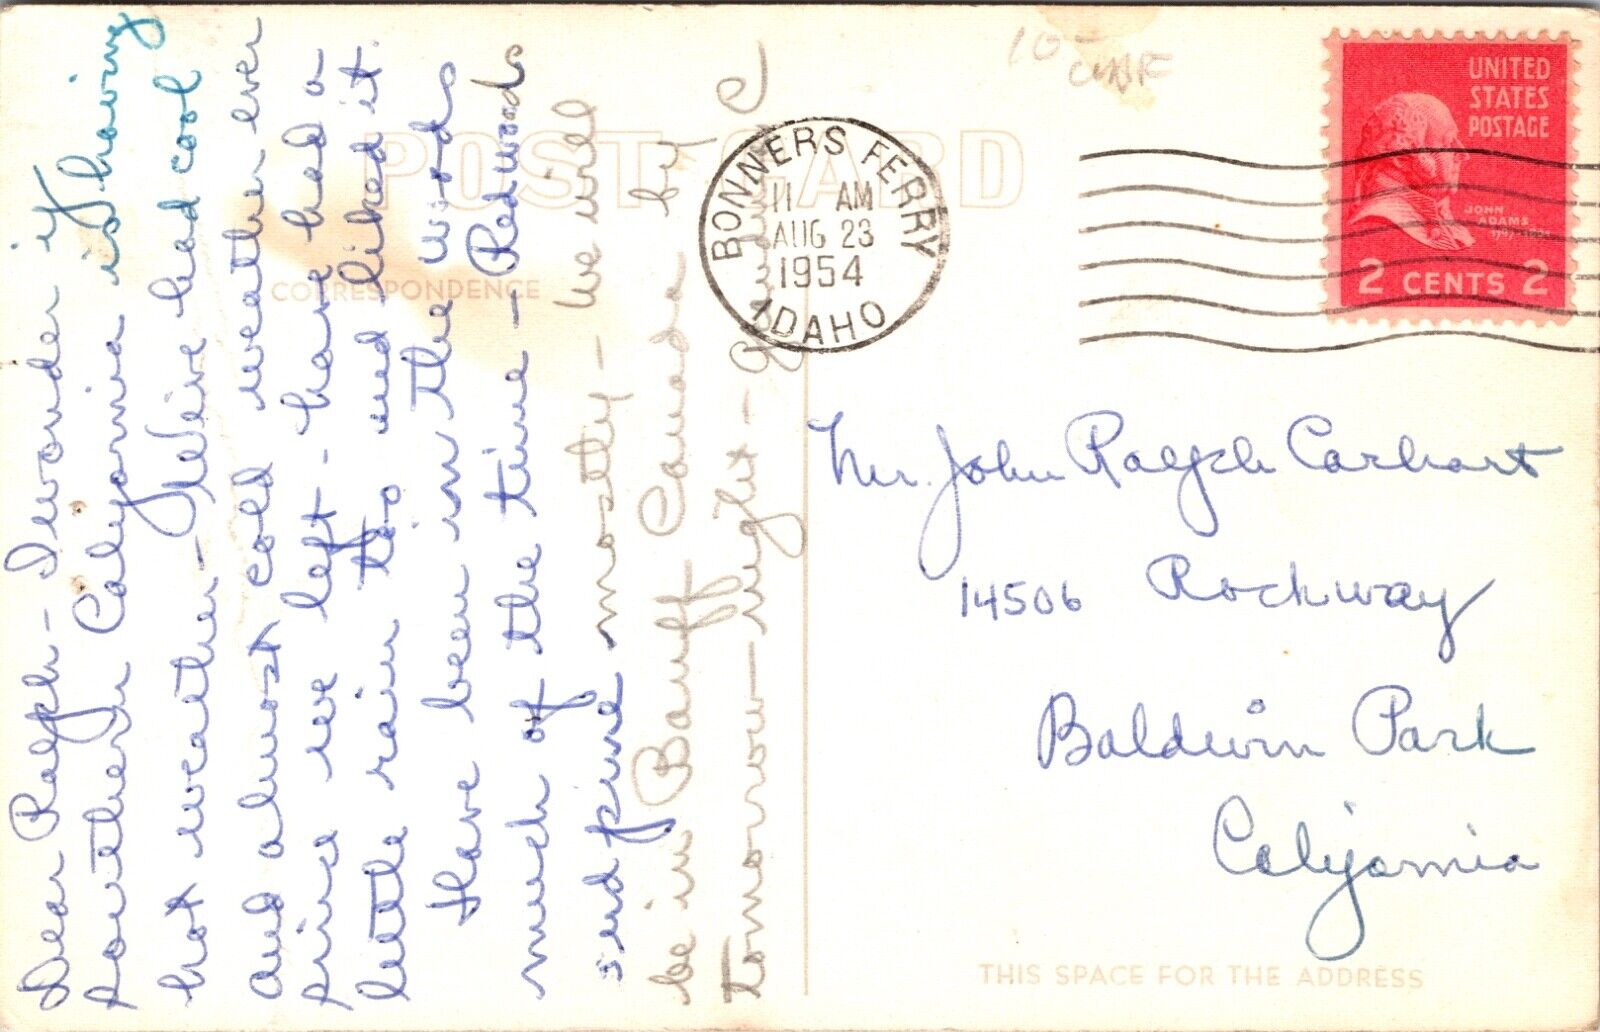 Dear Ralph - I wonder if
southern California is having
hot weather - We've had cool
and almost cold weather ever
since we left - have had a
little rain too and liked it.
Have been in the woods
much of the time - Redwoods
and pine mostly - We will
be in Banff Canada by
tomorrow night -
POST CARD
CORRESPONDENCE
10-
BONNERS FERRY
11 AM
AUG 23
1954
IDAHO
UNITED
STATES
POSTAGE
JOHN
ADAMS
2 CENTS 2
Mr. John Ralph Carhart
14506 Rockway
Baldwin Park
California
THIS SPACE FOR THE ADDRESS